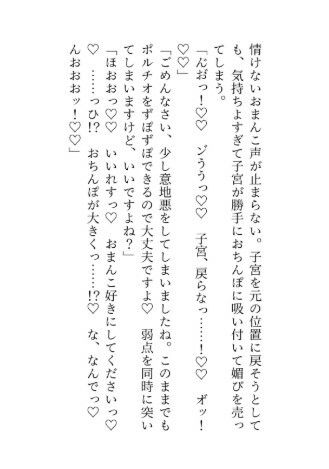 情けないおまんこ声が止まらない。子宮を元の位置に戻そうとして
も、気持ちよすぎて子宮が勝手におちんぽに吸い付いて媚びを売っ
てしまう。
「んおっ！♡♡　ゔううっ♡♡　子宮、戻らなっ……！♡♡　オッ！
♡♡」
「ごめんなさい、少し意地悪をしてしまいましたね。このままでも
ポルチオをずぼずぼできるので大丈夫ですよ♡　弱点を同時に突い
てしまいますけど、いいですよね？」
「ほおおっ♡♡　いいれすっ♡　おまんこ好きにしてくださいっ♡
♡　……っひ！？　おちんぽが大きくっ……！？♡　な、なんでっ♡
んおおおッ！♡♡」